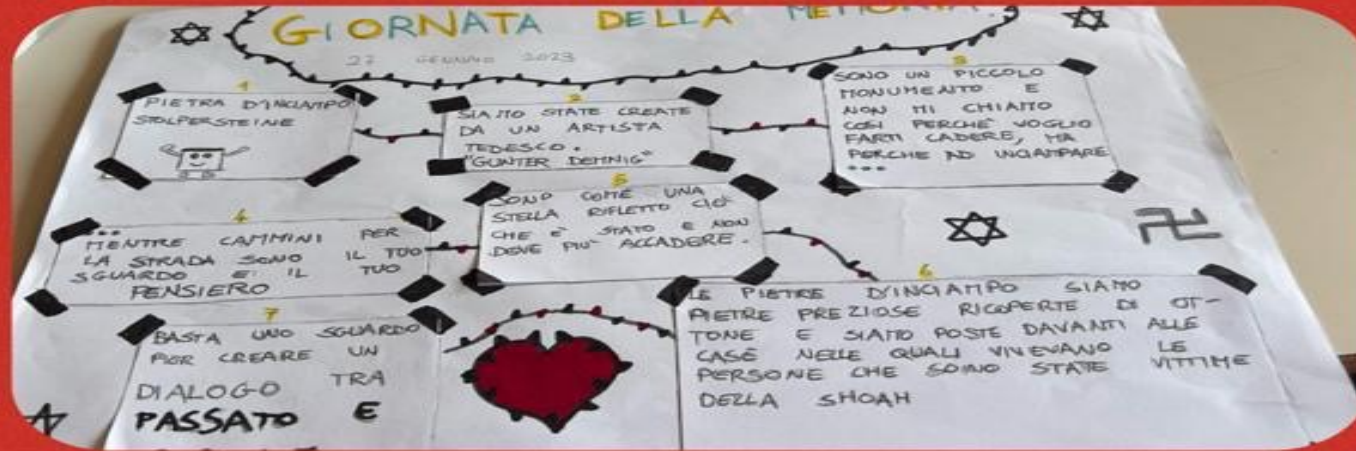 GIORNATA DELLA MEMORIA.
27 GENNAIO 2023
1
PIETRA D'INCIAMPO
STOLPERSTEINE
2
SIAMO STATE CREATE
DA UN ARTISTA
TEDESCO.
"GUNTER DEMNIG"
3
SONO UN PICCOLO
MONUMENTO E
NON MI CHIAMO
COSÌ PERCHÈ VOGLIO
FARTI CADERE, MA
PERCHE AD INCIAMPARE
...
4
...
MENTRE CAMMINI PER
LA STRADA SONO IL TUO
SGUARDO E IL TUO
PENSIERO
5
SONO COME UNA
STELLA RIFLETTO CIO'
CHE E' STATO E NON
DEVE PIU' ACCADERE.
6
LE PIETRE D'INCIAMPO SIAMO
PIETRE PREZIOSE RICOPERTE DI OT-
TONE E SIAMO POSTE DAVANTI ALLE
CASE NELLE QUALI VIVEVANO LE
PERSONE CHE SONO STATE VITTIME
DELLA SHOAH
7
BASTA UNO SGUARDO
PER CREARE UN
DIALOGO TRA
PASSATO E